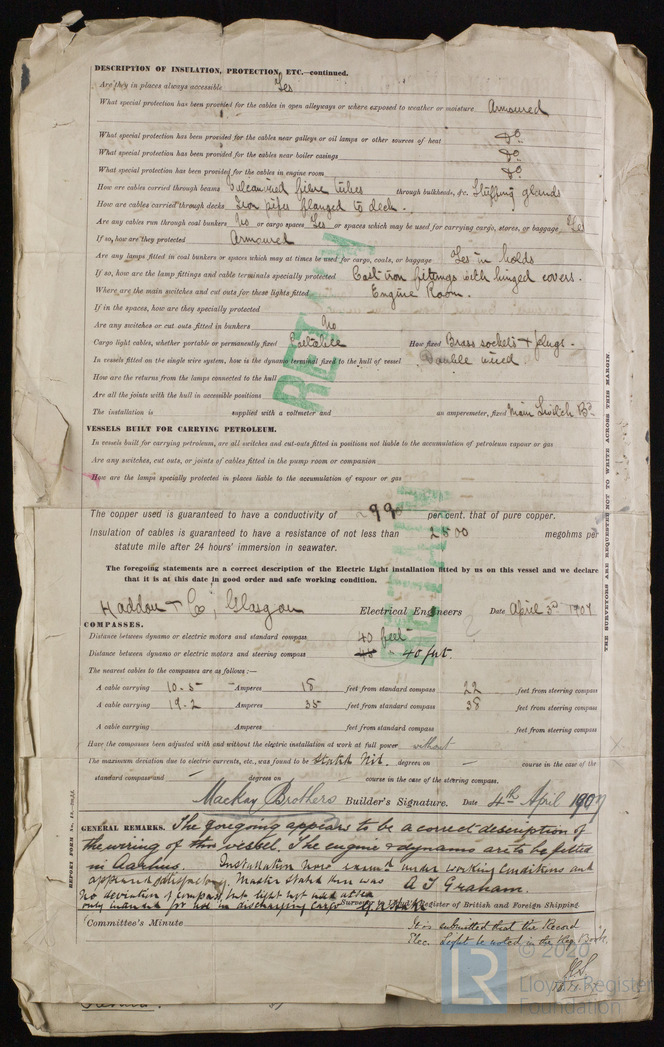 DESCRIPTION OF INSULATION, PROTECTION, ETC.—continued.
Are they in places always accessible Yes
What special protection has been provided for the cables in open alleyways or where exposed to weather or moisture Armoured
What special protection has been provided for the cables near galleys or oil lamps or other sources of heat Do
What special protection has been provided for the cables near boiler casings Do
What special protection has been provided for the cables in engine room Do
How are cables carried through beams Vulcanized fibre tubes through bulkheads, &c. Stuffing glands
How are cables carried through decks Iron pipes flanged to deck.
Are any cables run through coal bunkers No or cargo spaces Yes or spaces which may be used for carrying cargo, stores, or baggage Yes
If so, how are they protected Armoured
Are any lamps fitted in coal bunkers or spaces which may at times be used for cargo, coals, or baggage Yes in holds
If so, how are the lamp fittings and cable terminals specially protected Cast iron fittings with hinged covers.
Where are the main switches and cut outs for these lights fitted Engine Room.
If in the spaces, how are they specially protected
Are any switches or cut outs fitted in bunkers No
Cargo light cables, whether portable or permanently fixed Portable How fixed Brass sockets + plugs.
In vessels fitted on the single wire system, how is the dynamo terminal fixed to the hull of vessel Double wired
How are the returns from the lamps connected to the hull
Are all the joints with the hull in accessible positions
The installation is supplied with a voltmeter and an amperemeter, fixed Main Switch Bd
VESSELS BUILT FOR CARRYING PETROLEUM.
In vessels built for carrying petroleum, are all switches and cut-outs fitted in positions not liable to the accumulation of petroleum vapour or gas
Are any switches, cut outs, or joints of cables fitted in the pump room or companion
How are the lamps specially protected in places liable to the accumulation of vapour or gas
The copper used is guaranteed to have a conductivity of 99 per cent. that of pure copper.
Insulation of cables is guaranteed to have a resistance of not less than 2500 megohms per
statute mile after 24 hours' immersion in seawater.
The foregoing statements are a correct description of the Electric Light installation fitted by us on this vessel and we declare
that it is at this date in good order and safe working condition.
Haddow & Co, Glasgow Electrical Engineers Date April 3d 1907
COMPASSES.
Distance between dynamo or electric motors and standard compass 40 feet
Distance between dynamo or electric motors and steering compass 40 feet.
The nearest cables to the compasses are as follows:—
A cable carrying 10.5 Amperes 18 feet from standard compass 22 feet from steering compass
A cable carrying 19.2 Amperes 35 feet from standard compass 38 feet from steering compass
A cable carrying Amperes feet from standard compass feet from steering compass
Have the compasses been adjusted with and without the electric installation at work at full power without
The maximum deviation due to electric currents, etc., was found to be Stated Nil. degrees on — course in the case of the
standard compass and — degrees on — course in the case of the steering compass.
Mackay Brothers Builder's Signature. Date 4th April 1907
GENERAL REMARKS. The foregoing appears to be a correct description of
the wiring of this vessel. The engine & dynamo are to be fitted
in Aarhus. Installation now under working conditions and
appeared satisfactory. Master stated there was A J Graham.
no deviation of compass, but light not used at sea
only for use in discharging cargo Surveyor to Lloyd's Register of British and Foreign Shipping
Committee's Minute It is submitted that the Record
Elec. Light be noted in the Reg. Book.
THE SURVEYORS ARE REQUESTED NOT TO WRITE ACROSS THIS MARGIN.
REPORT FORM No.
RETAIN
RETAIN
LR
© 2020
Lloyd's Register
Foundation